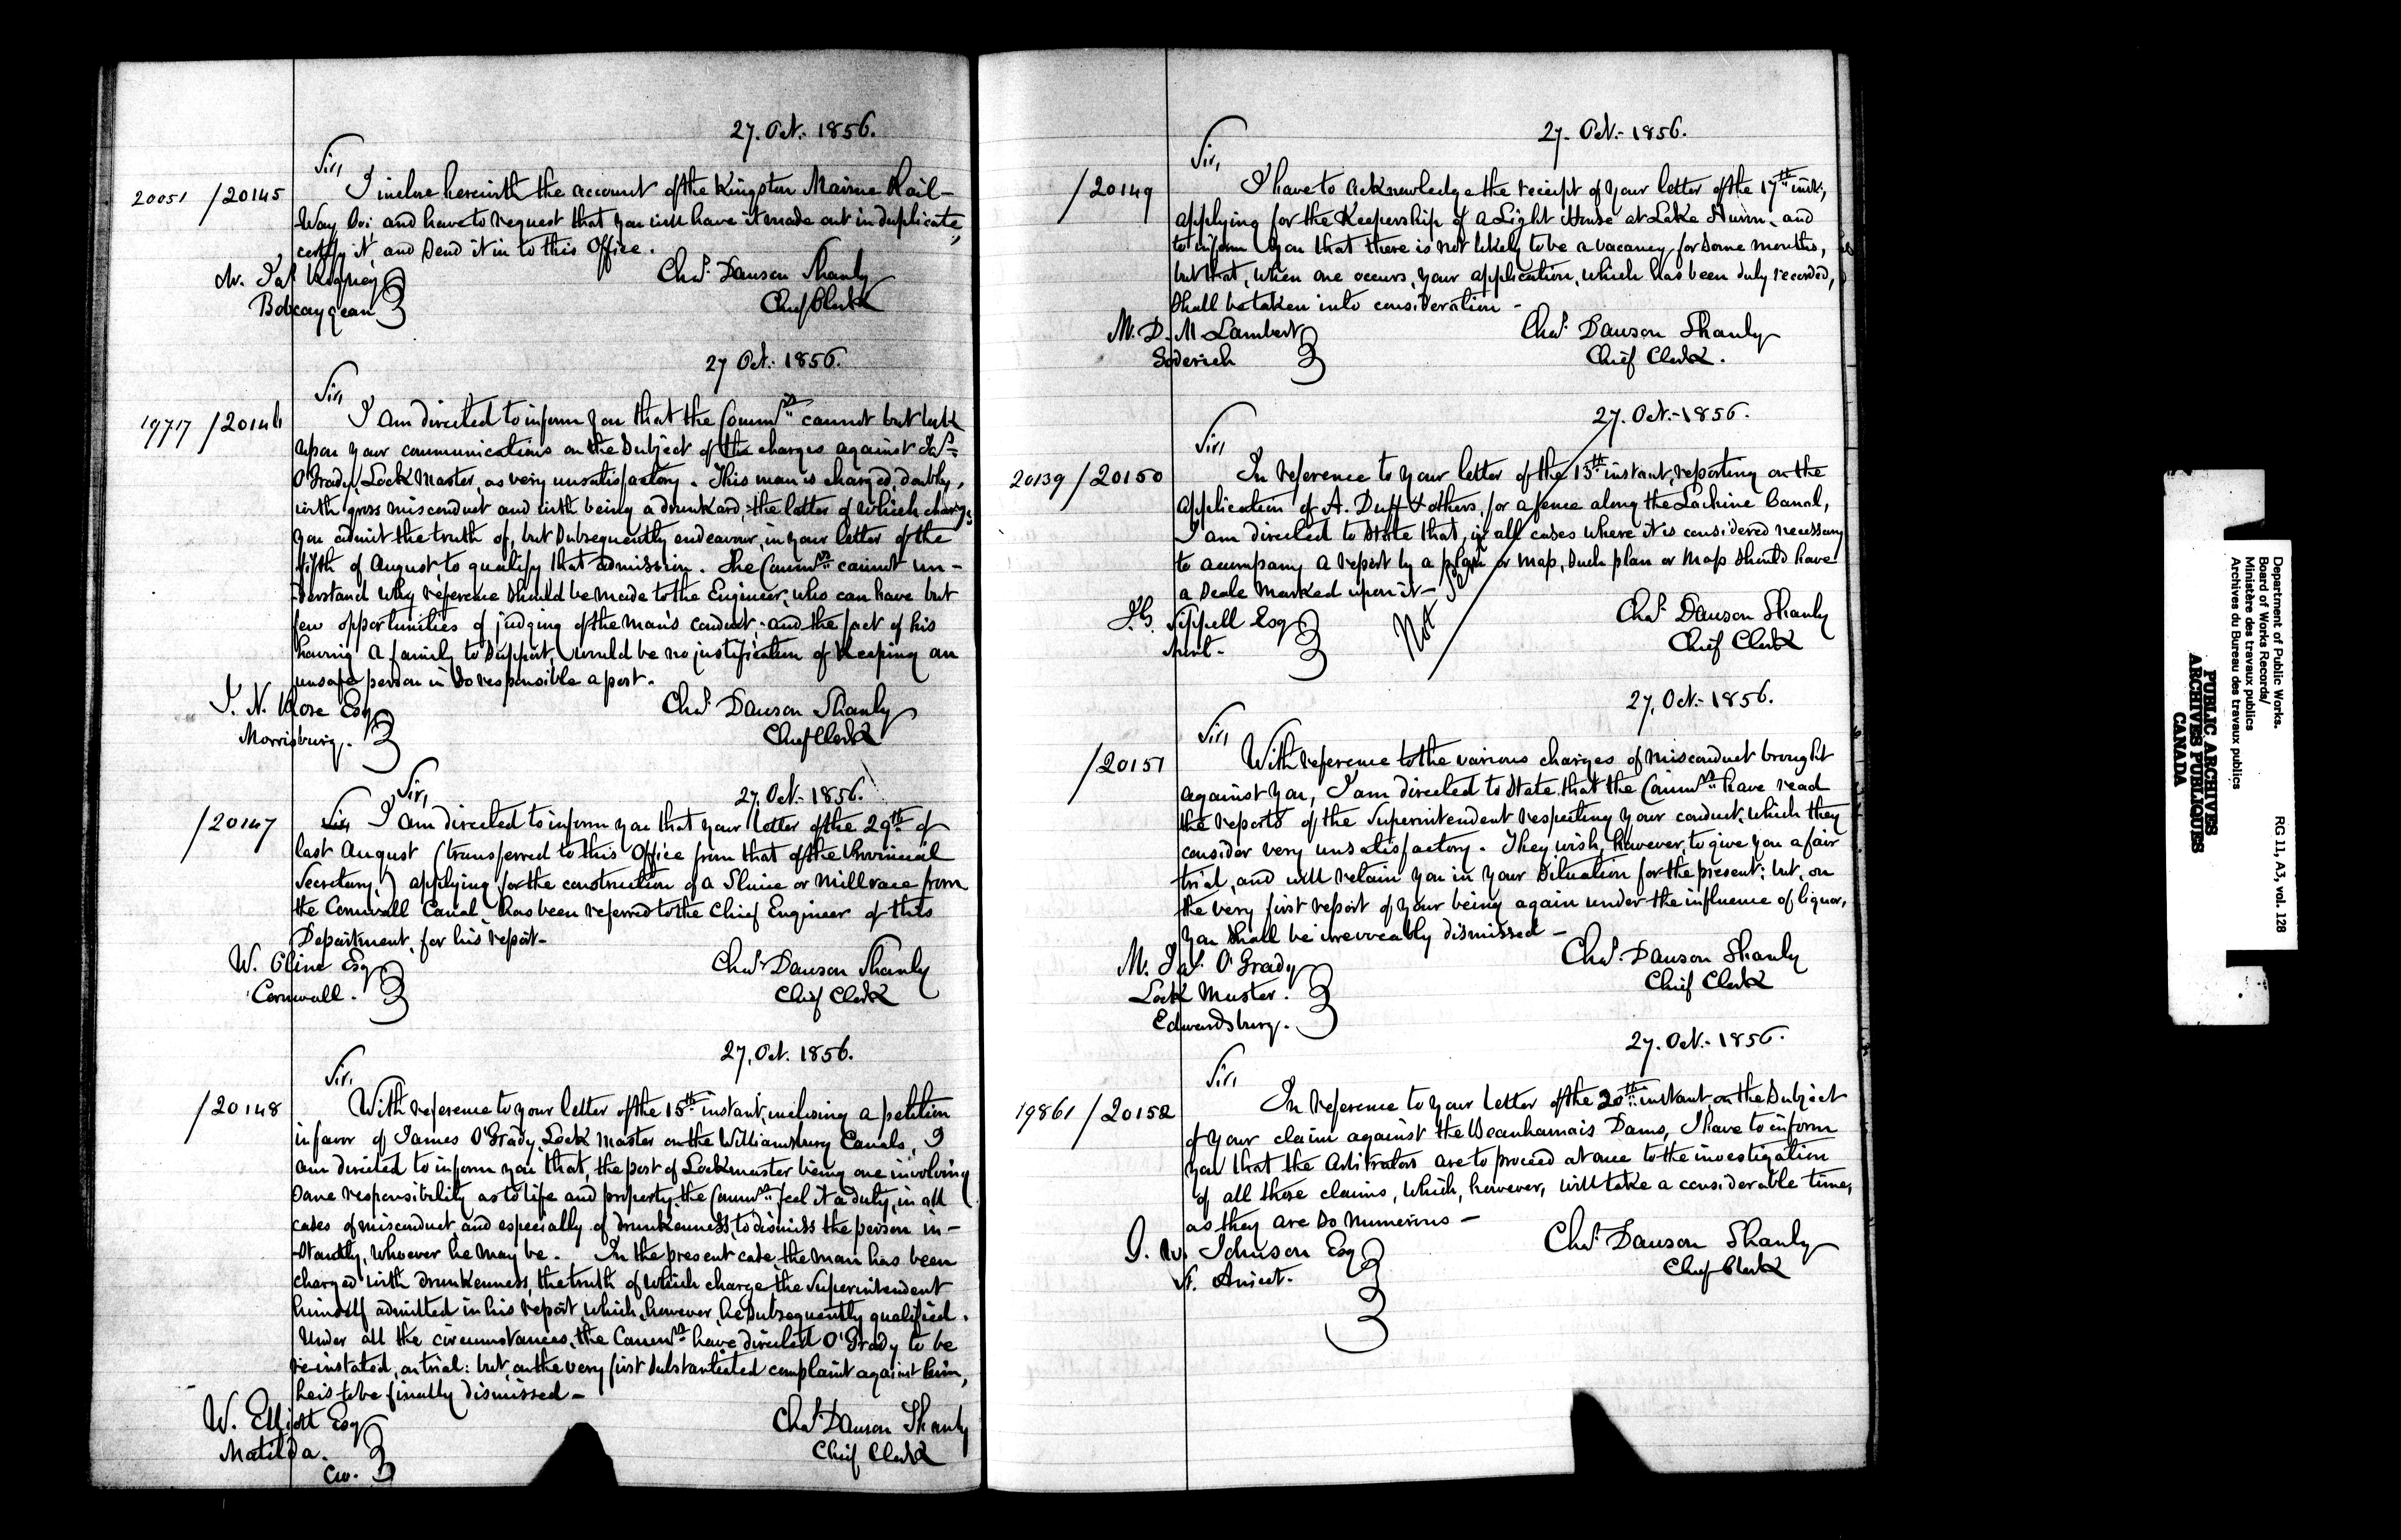 27. Oct. 1856.
Sir,
20051 /20145
I inclose herewith the account of the Kingston Marine Rail-
Way Co: and have to request that you will have it made out in duplicate,
certify it, and send it in to this Office.
Chas. Dawson Shanly
Chief Clerk
Mr. Jas.
Bobcaygean
27 Oct. 1856.
Sir,
19717 /20146
I am directed to inform you that the Commrs. cannot but look
upon your communications on the subject of the charges against Jas.
O'Grady, Lock Master, as very unsatisfactory. This man is charged, doubly,
with gross misconduct and with being a drunkard, the latter of which charges
you admit the truth of, but subsequently endeavour, in your letter of the
fifth of August, to qualify that admission. The Commrs. cannot un-
derstand why reference should be made to the Engineer, who can have but
few opportunities of judging of the man's conduct; and the fact of his
having a family to support, would be no justification of keeping an
unsafe person in so responsible a post.
Chas. Dawson Shanly
Chief Clerk
J. N. Rose Esq
Morrisburg.
27. Oct. 1856.
Sir,
/20147
Sir, I am directed to inform you that your letter of the 29th of
last August (transferred to this Office from that of the Provincial
Secretary,) applying for the construction of a Sluice or Millrace from
the Cornwall Canal, has been referred to the Chief Engineer of this
Department, for his report-
Chas. Dawson Shanly
Chief Clerk
W. Cline Esq
Cornwall.
27. Oct. 1856.
Sir,
/20148
With reference to your letter of the 15th instant, inclosing a petition
in favor of James O'Grady, Lock Master on the Williamsburg Canals, I
am directed to inform you that, the post of Lockmaster being one involving
some responsibility as to life and property, the Commrs. feel it a duty, in all
cases of misconduct, and especially of drunkenness, to dismiss the person in-
stantly, whoever he may be. In the present case, the man has been
charged with drunkenness, the truth of which charge the Superintendent
himself admitted in his report, which, however, he subsequently qualified.
Under all the circumstances, the Commrs. have directed O'Grady to be
re-instated, on trial: but, on the very first substantiated complaint against him,
he is to be finally dismissed-
Chas. Dawson Shanly
Chief Clerk
W. Elliott Esq
Matilda.
CW.
27. Oct. 1856.
Sir,
/20149
I have to acknowledge the receipt of your letter of the 17th inst;
applying for the Keepership of a Light House at Lake Huron; and
to inform you that there is not likely to be a vacancy for some months,
but that, when one occurs, your application, which has been duly recorded,
shall be taken into consideration-
Chas. Dawson Shanly
Chief Clerk.
M. D. M Lambert
Goderich
27. Oct. 1856.
Sir,
20139 /20150
In reference to your letter of the 13th instant, reporting on the
application of A. Duff & others, for a fence along the Lachine Canal,
I am directed to state that, in all cases where it is considered necessary
to accompany a report by a plan or map, such plan or map should have
a scale marked upon it-
Not sent
Chas. Dawson Shanly
Chief Clerk
J.G. Sippell Esq
27. Oct. 1856.
Sir,
/20151
With reference to the various charges of misconduct brought
against you, I am directed to state that the Commrs. have read
the reports of the Superintendent respecting your conduct, which they
consider very unsatisfactory. They wish, however, to give you a fair
trial, and will retain you in your situation for the present: but, on
the very first report of your being again under the influence of liquor,
you shall be irrevocably dismissed-
Chas. Dawson Shanly
Chief Clerk
M. Jas. O'Grady
Lock Master.
Edwardsburg.
27. Oct. 1856.
Sir,
19861 /20152
In reference to your letter of the 20th instant on the subject
of your claim against the Beauharnais Dams, I have to inform
you that the Arbitrators are to proceed at once to the investigation
of all these claims, which, however, will take a considerable time,
as they are so numerous-
Chas. Dawson Shanly
Chief Clerk
G. W. Johnson Esq
St. Anicet.
Department of Public Works.
Board of Works Records/
Ministère des travaux publics
Archives du Bureau des travaux publics
RG 11, A3, vol. 128
PUBLIC ARCHIVES
ARCHIVES PUBLIQUES
CANADA